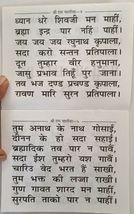 श्री राम चालीसा
ध्यान धरे शिवजी मन माहीं,
ब्रह्मा इन्द्र पार नहिं पाहीं।
जय जय जय रघुनाथ कृपाला,
सदा करो सन्तन प्रतिपाला।
दूत तुम्हार वीर हनुमाना,
जासु प्रभाव तिहूँ पुर जाना।
तव भुज दण्ड प्रचण्ड कृपाला,
रावण मारि सुरन प्रतिपाला।
श्री राम चालीसा
तुम अनाथ के नाथ गोसाईं,
दीनन के हो सदा सहाई।
ब्रह्मादिक तव पार न पावैं,
सदा ईश तुम्हरो यश गावैं।
चारिउ वेद भरत हैं साखी,
तुम भक्तन की लज्जा राखी।
गुण गावत शारद मन माहीं,
सुरपति ताको पार न पाहीं।